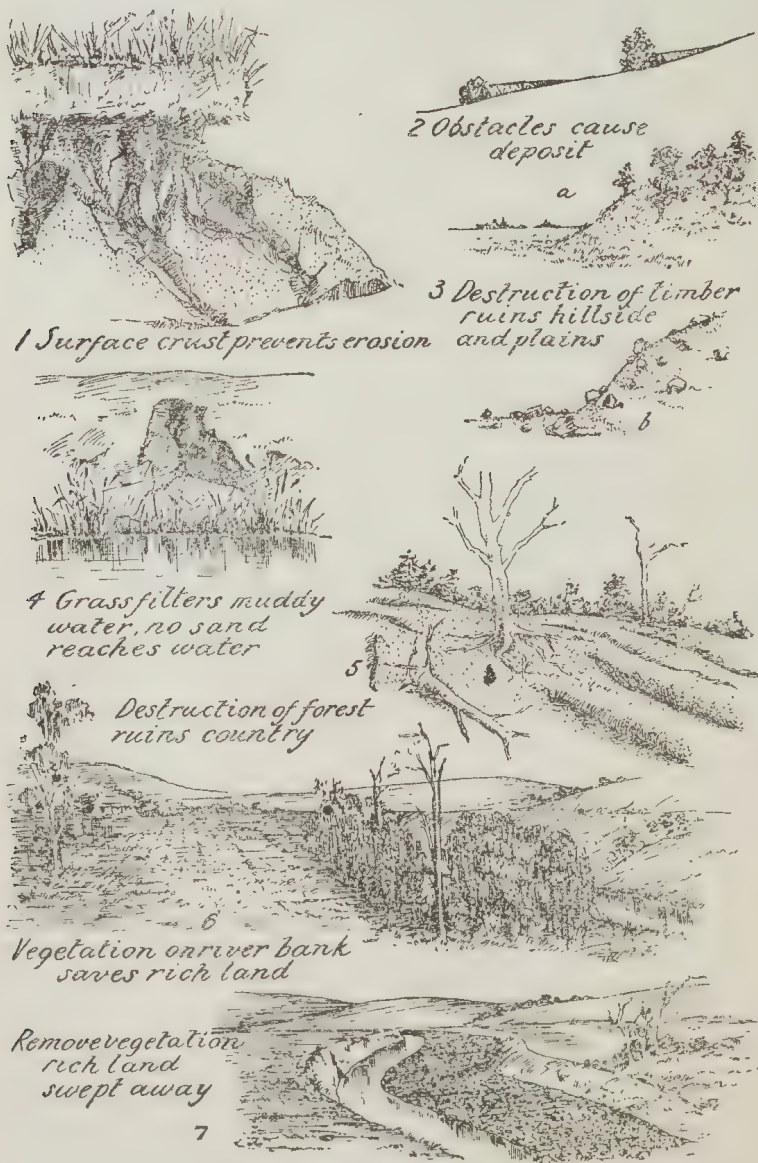 2 Obstacles cause
deposit
a
3 Destruction of timber
ruins hillside
and plains
b
1 Surface crust prevents erosion
4 Grass filters muddy
water, no sand
reaches water
5
Destruction of forest
ruins country
6
Vegetation on river bank
saves rich land
Remove vegetation
rich land
swept away
7